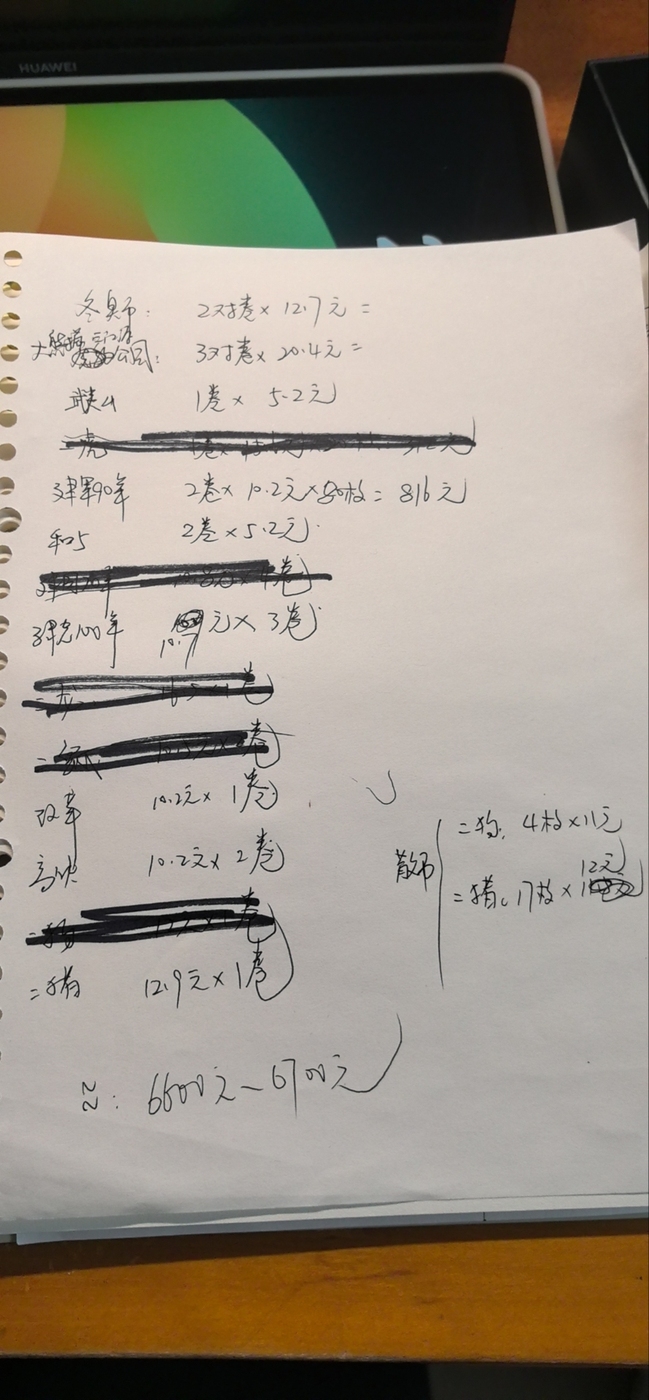 HUAWEI
冬奥币: 2对卷 × 12.7元 =
大熊猫 三江源 公园: 3对卷 × 20.4元 =
武夷山 1卷 × 5.2元
二虎
建军90年 2卷 × 10.2元 × 40枚 = 816元
和5 2卷 × 5.2元
卷
建党100年 10.7元 × 3卷
卷
卷
改革 10.2元 × 1卷
高铁 10.2元 × 2卷
卷
二猪 12.9元 × 1卷
散币
二狗. 4枚 × 11元
二猪. 17枚 × 12元
≈: 6600元~6700元